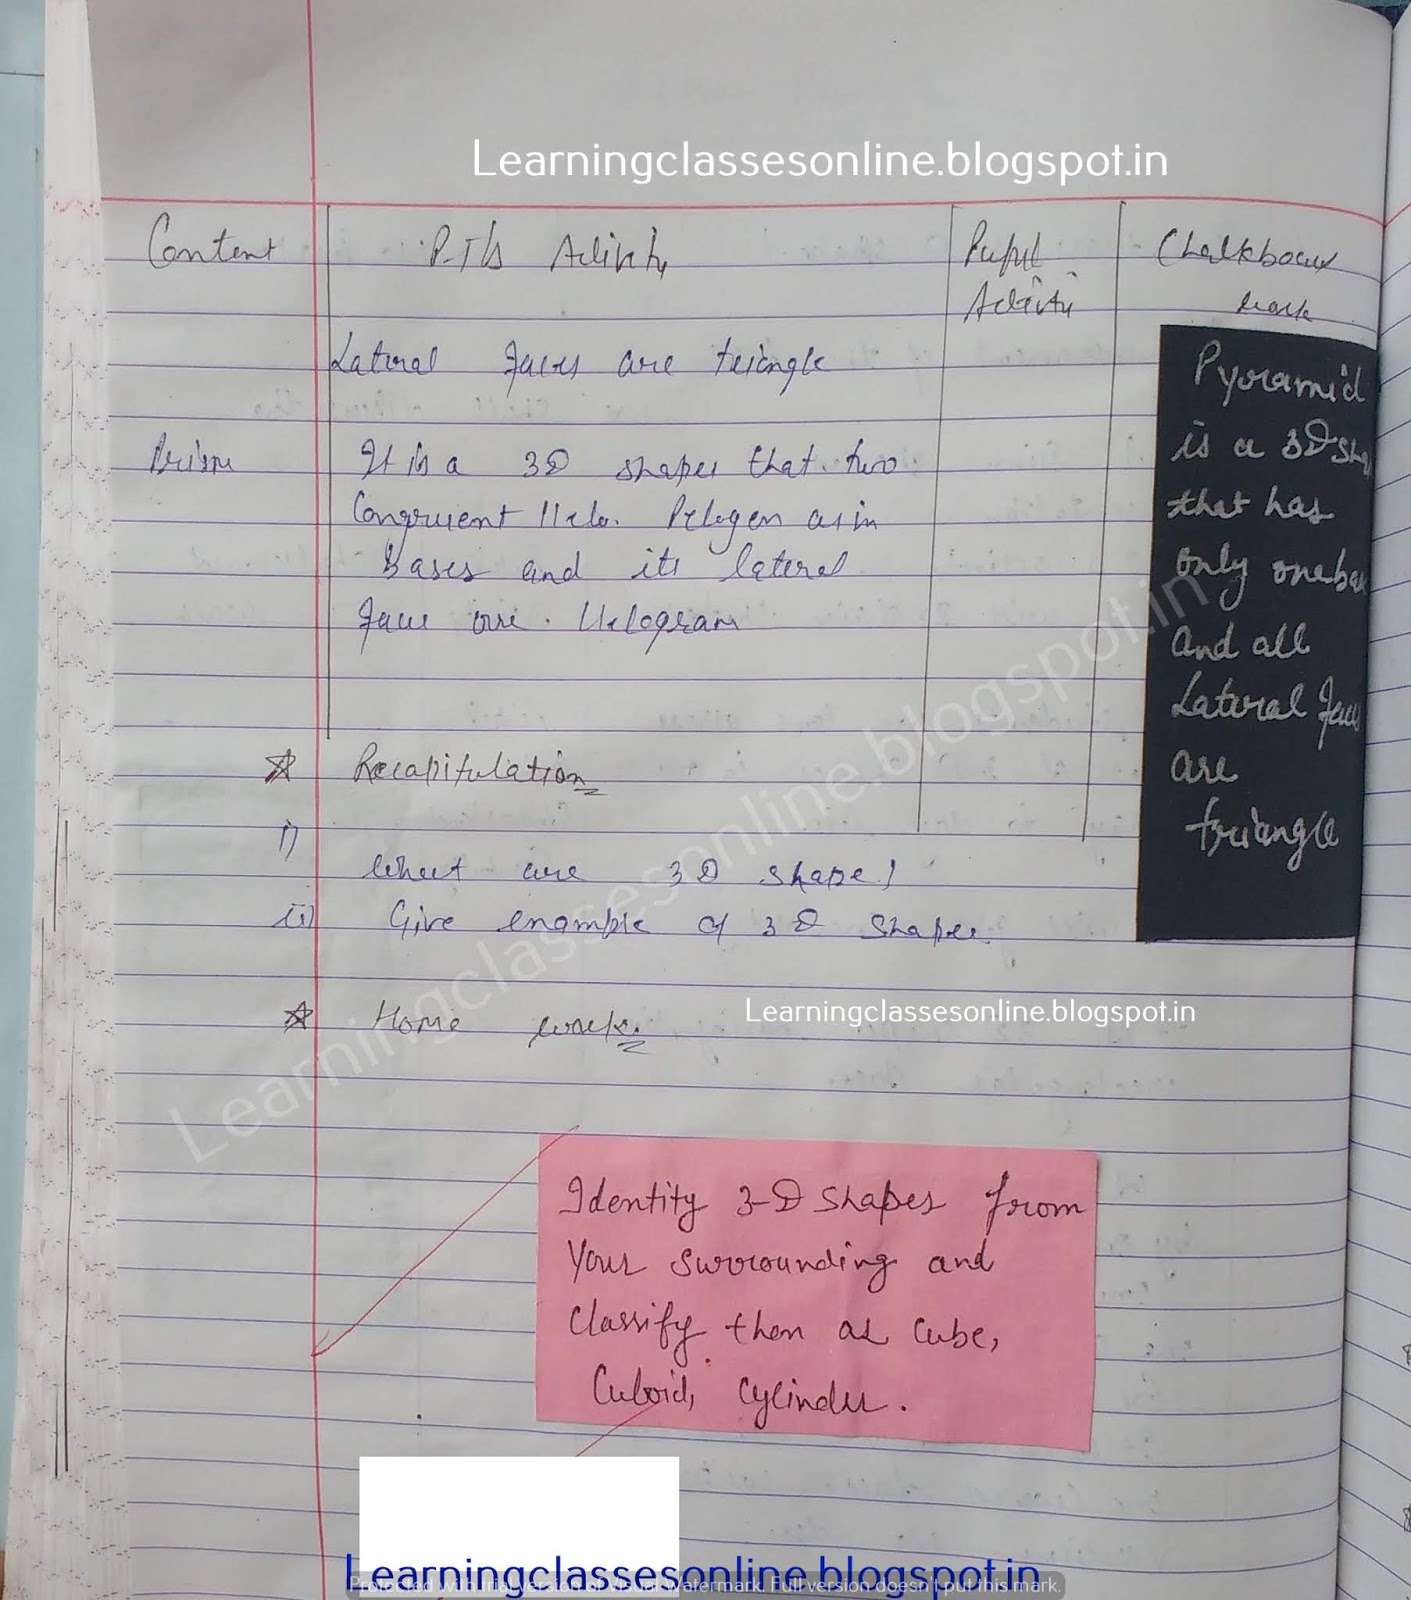 Learningclassesonline.blogspot.in
Content P.T's Activity Pupil Activity Chalkboard work
Lateral faces are triangle
Prism It is a 3D shapes that two
Congruent 11elo. Pologen as in
bases and its lateral
face are. 11elogram
Pyramid
is a 3D Sha
that has
only one ba
and all
Lateral face
are
triangle
Recapitulation
i) What are 3D shape?
ii) Give enample of 3D Shapes
Home work.
Learningclassesonline.blogspot.in
Learningclassesonline.blogspot.in
Identity 3-D Shapes from
Your surrounding and
Classify then as Cube,
Cuboid, Cylinder.
Learningclassesonline.blogspot.in
Protected with trial version of Visual Watermark. Full version doesn't put this mark.